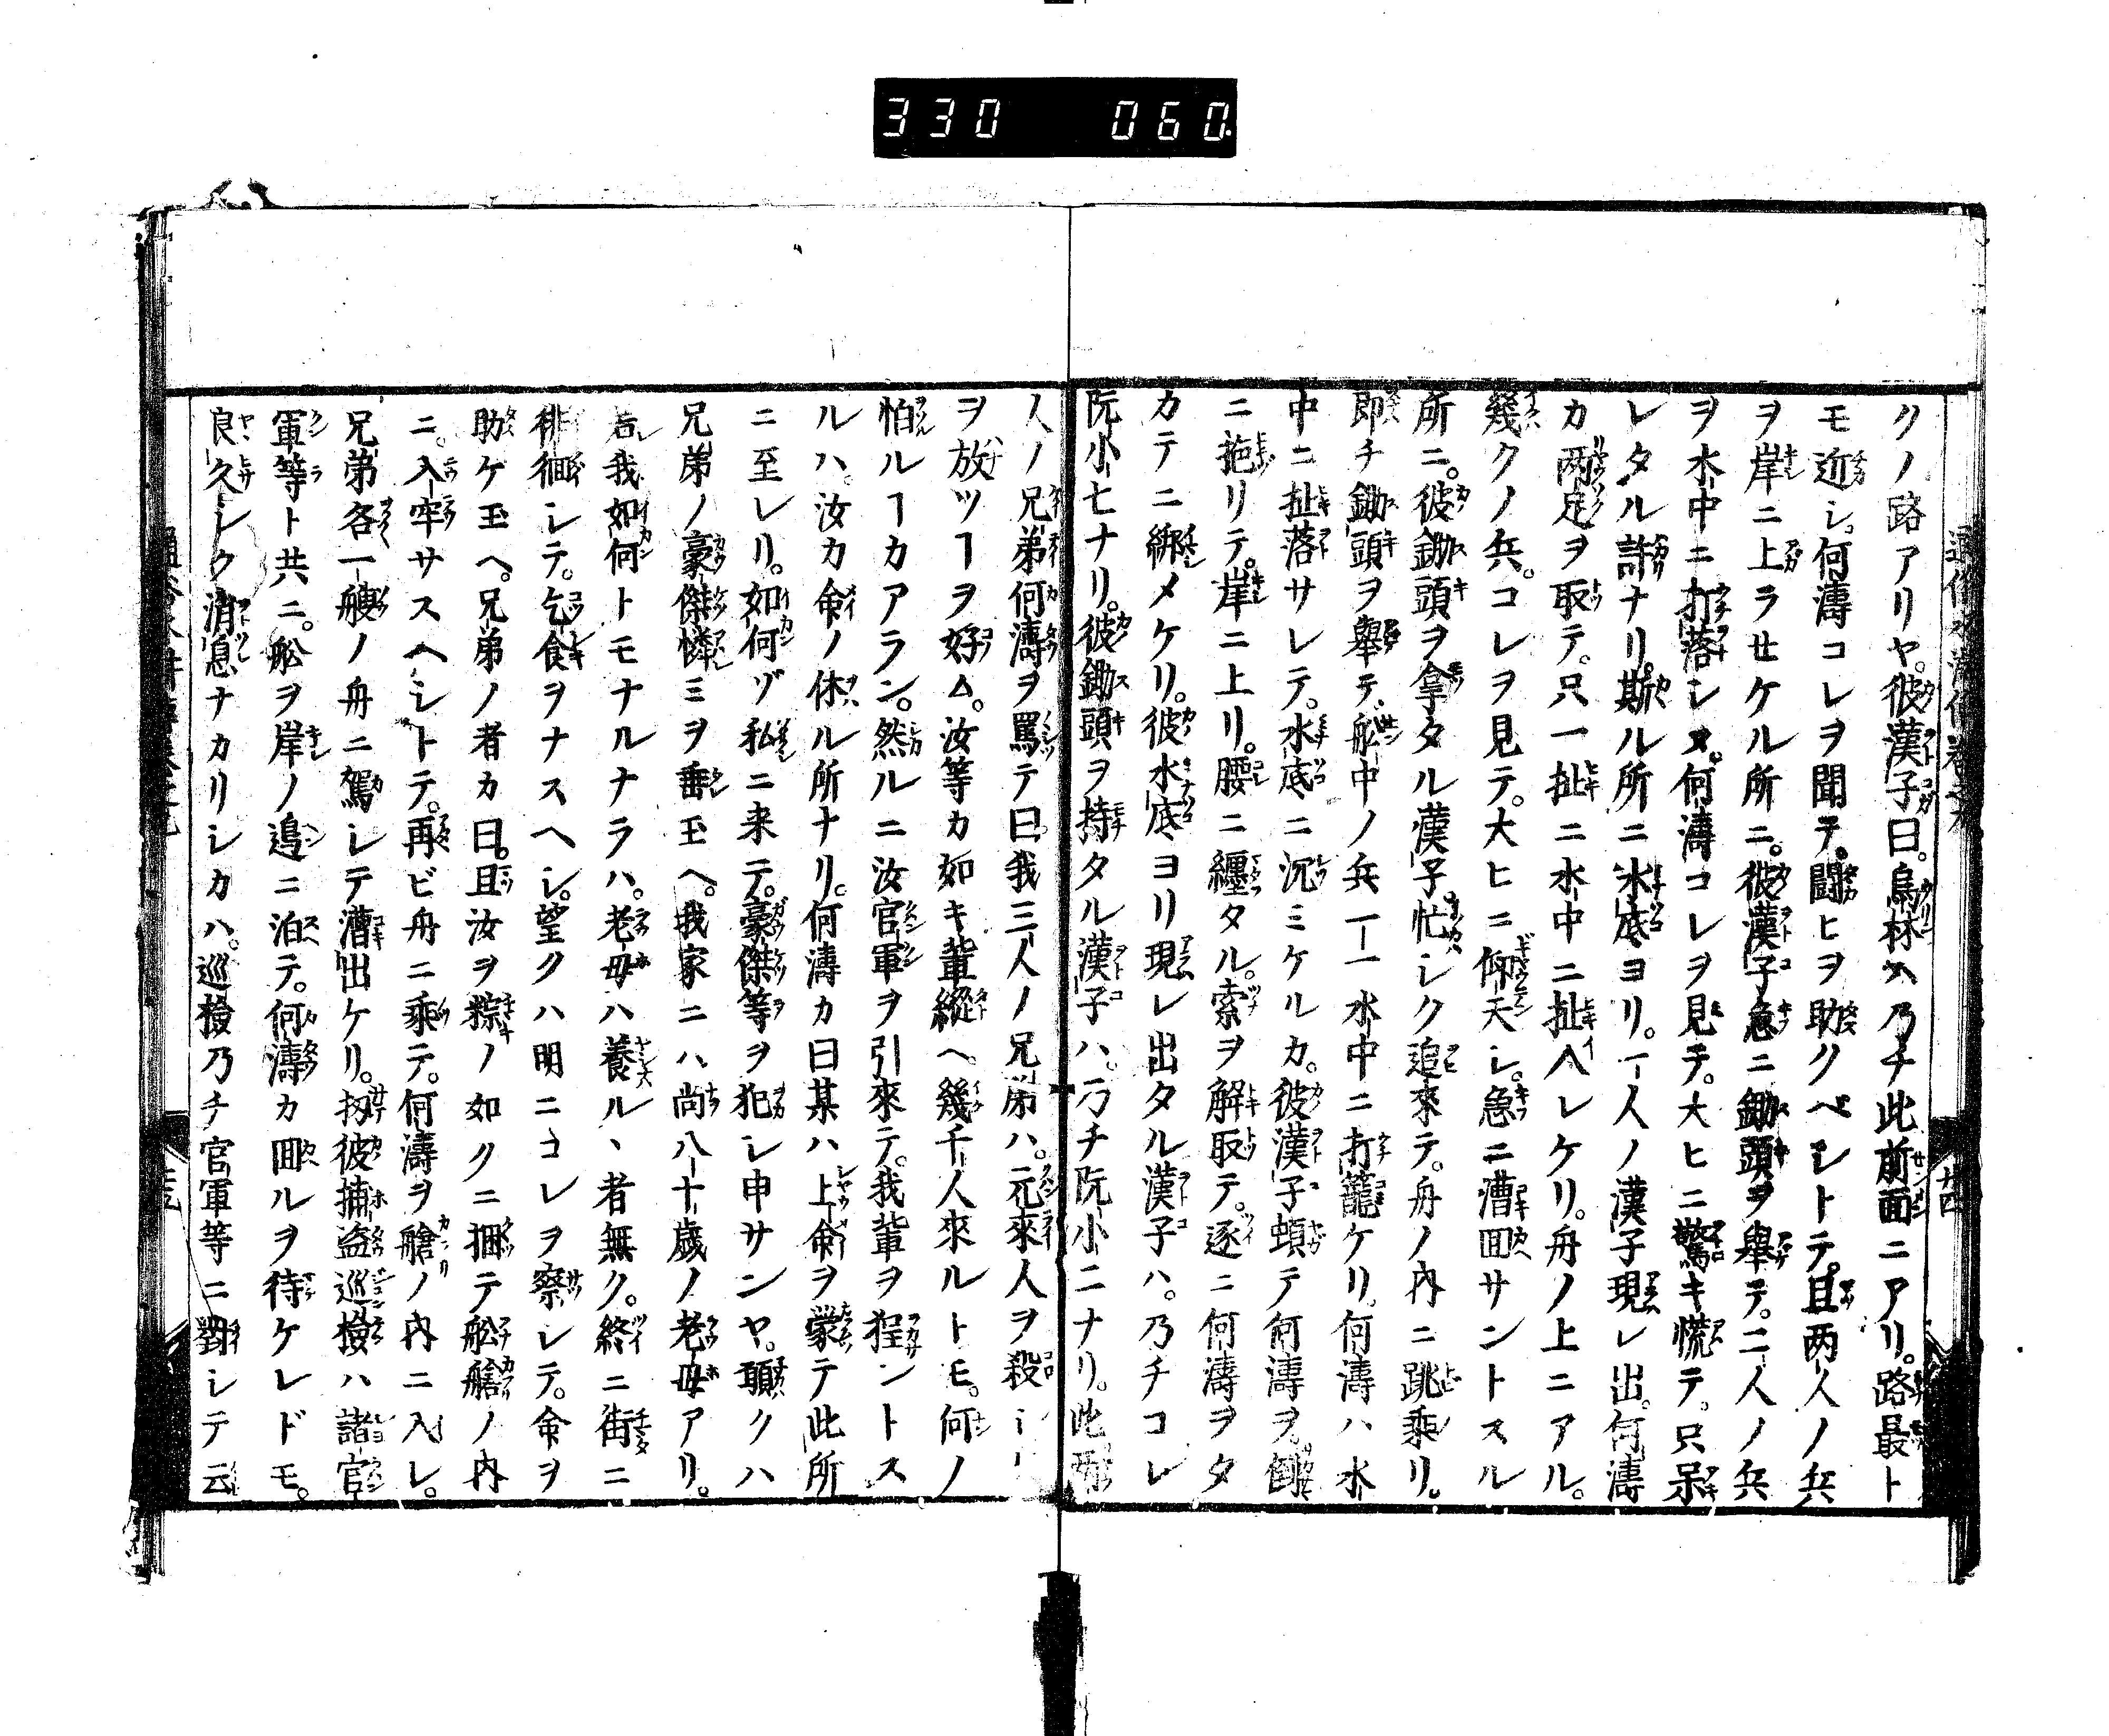 330 060
クノ路アリヤ。彼漢子曰。烏林ハ乃チ此前面ニアリ。路最ト
モ近シ。何濤コレヲ聞テ。闘ヒヲ助クベシトテ。且両人ノ兵
ヲ岸ニ上ラせケル所ニ。彼漢子急ニ鋤頭ヲ舉テ。二人ノ兵
ヲ水中ニ打落シヌ。何濤コレヲ見テ。大ヒニ驚キ慌テ。只呆
レタル許ナリ。斯ル所ニ水底ヨリ。一人ノ漢子現レ出。何濤
カ両足ヲ取テ。只一扯ニ水中ニ扯入レケリ。舟ノ上ニアル。
幾クノ兵。コレヲ見テ。大ヒニ仰天シ。急ニ漕回サントスル
所ニ。彼鋤頭ヲ拿タル漢子忙シク追來テ。舟ノ内ニ跳乘リ。
即チ鋤頭ヲ舉テ。舩中ノ兵一一水中ニ打籠ケリ。何濤ハ水
中ニ扯落サレテ。水底ニ沉ミケルカ。彼漢子頓テ何濤ヲ。倒
ニ拖リテ。岸ニ上リ。腰ニ纏タル。索ヲ解取テ。逐ニ何濤ヲタ
カテニ綁メケリ。彼水底ヨリ現レ出タル漢子ハ。乃チコレ
阮小七ナリ。彼鋤頭ヲ持タル漢子ハ。乃チ阮小二ナリ。此両
人ノ兄弟何濤ヲ罵テ曰。我三人ノ兄弟ハ。元來人ヲ殺シ
ヲ放ツヿヲ好ム。汝等カ如キ輩縱ヘ幾千人來ルトモ。何ノ
怕ルヿカアラン。然ルニ汝官軍ヲ引來テ。我輩ヲ捉ントス
ルハ。汝カ命ノ休ル所ナリ。何濤カ曰某ハ上命ヲ蒙テ此所
ニ至レリ。如何ゾ私ニ来テ。豪傑等ヲ犯シ申サンヤ。願クハ
兄弟ノ豪傑憐ミヲ垂玉ヘ。我家ニハ尚八十歳ノ老母アリ。
若我如何トモナルナラハ。老母ハ養ル、者無ク。終ニ街ニ
徘徊シテ。乞食ヲナスヘシ。望クハ明ニコレヲ察シテ。命ヲ
助ケ玉ヘ。兄弟ノ者カ曰。且汝ヲ粽ノ如クニ捆テ舩艙ノ内
ニ。入牢サスヘシトテ。再ビ舟ニ乘テ。何濤ヲ艙ノ内ニ入レ。
兄弟各一艘ノ舟ニ駕シテ漕出ケリ。扨彼捕盗巡檢ハ諸官
軍等ト共ニ。舩ヲ岸ノ邉ニ泊テ。何濤カ囬ルヲ待ケレドモ。
良久シク消息ナカリシカハ。巡檢乃チ官軍等ニ對シテ云